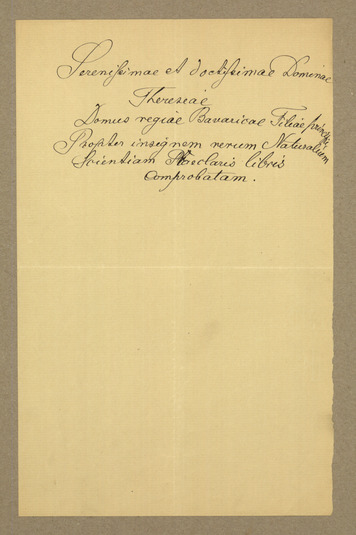 Serenissimae et doctissimae Dominae
Theresiae
Domus regiae Bavaricae Filiae
Propter insignem rerum Naturalium
Scientiam Preclaris libris
Comprobatam.